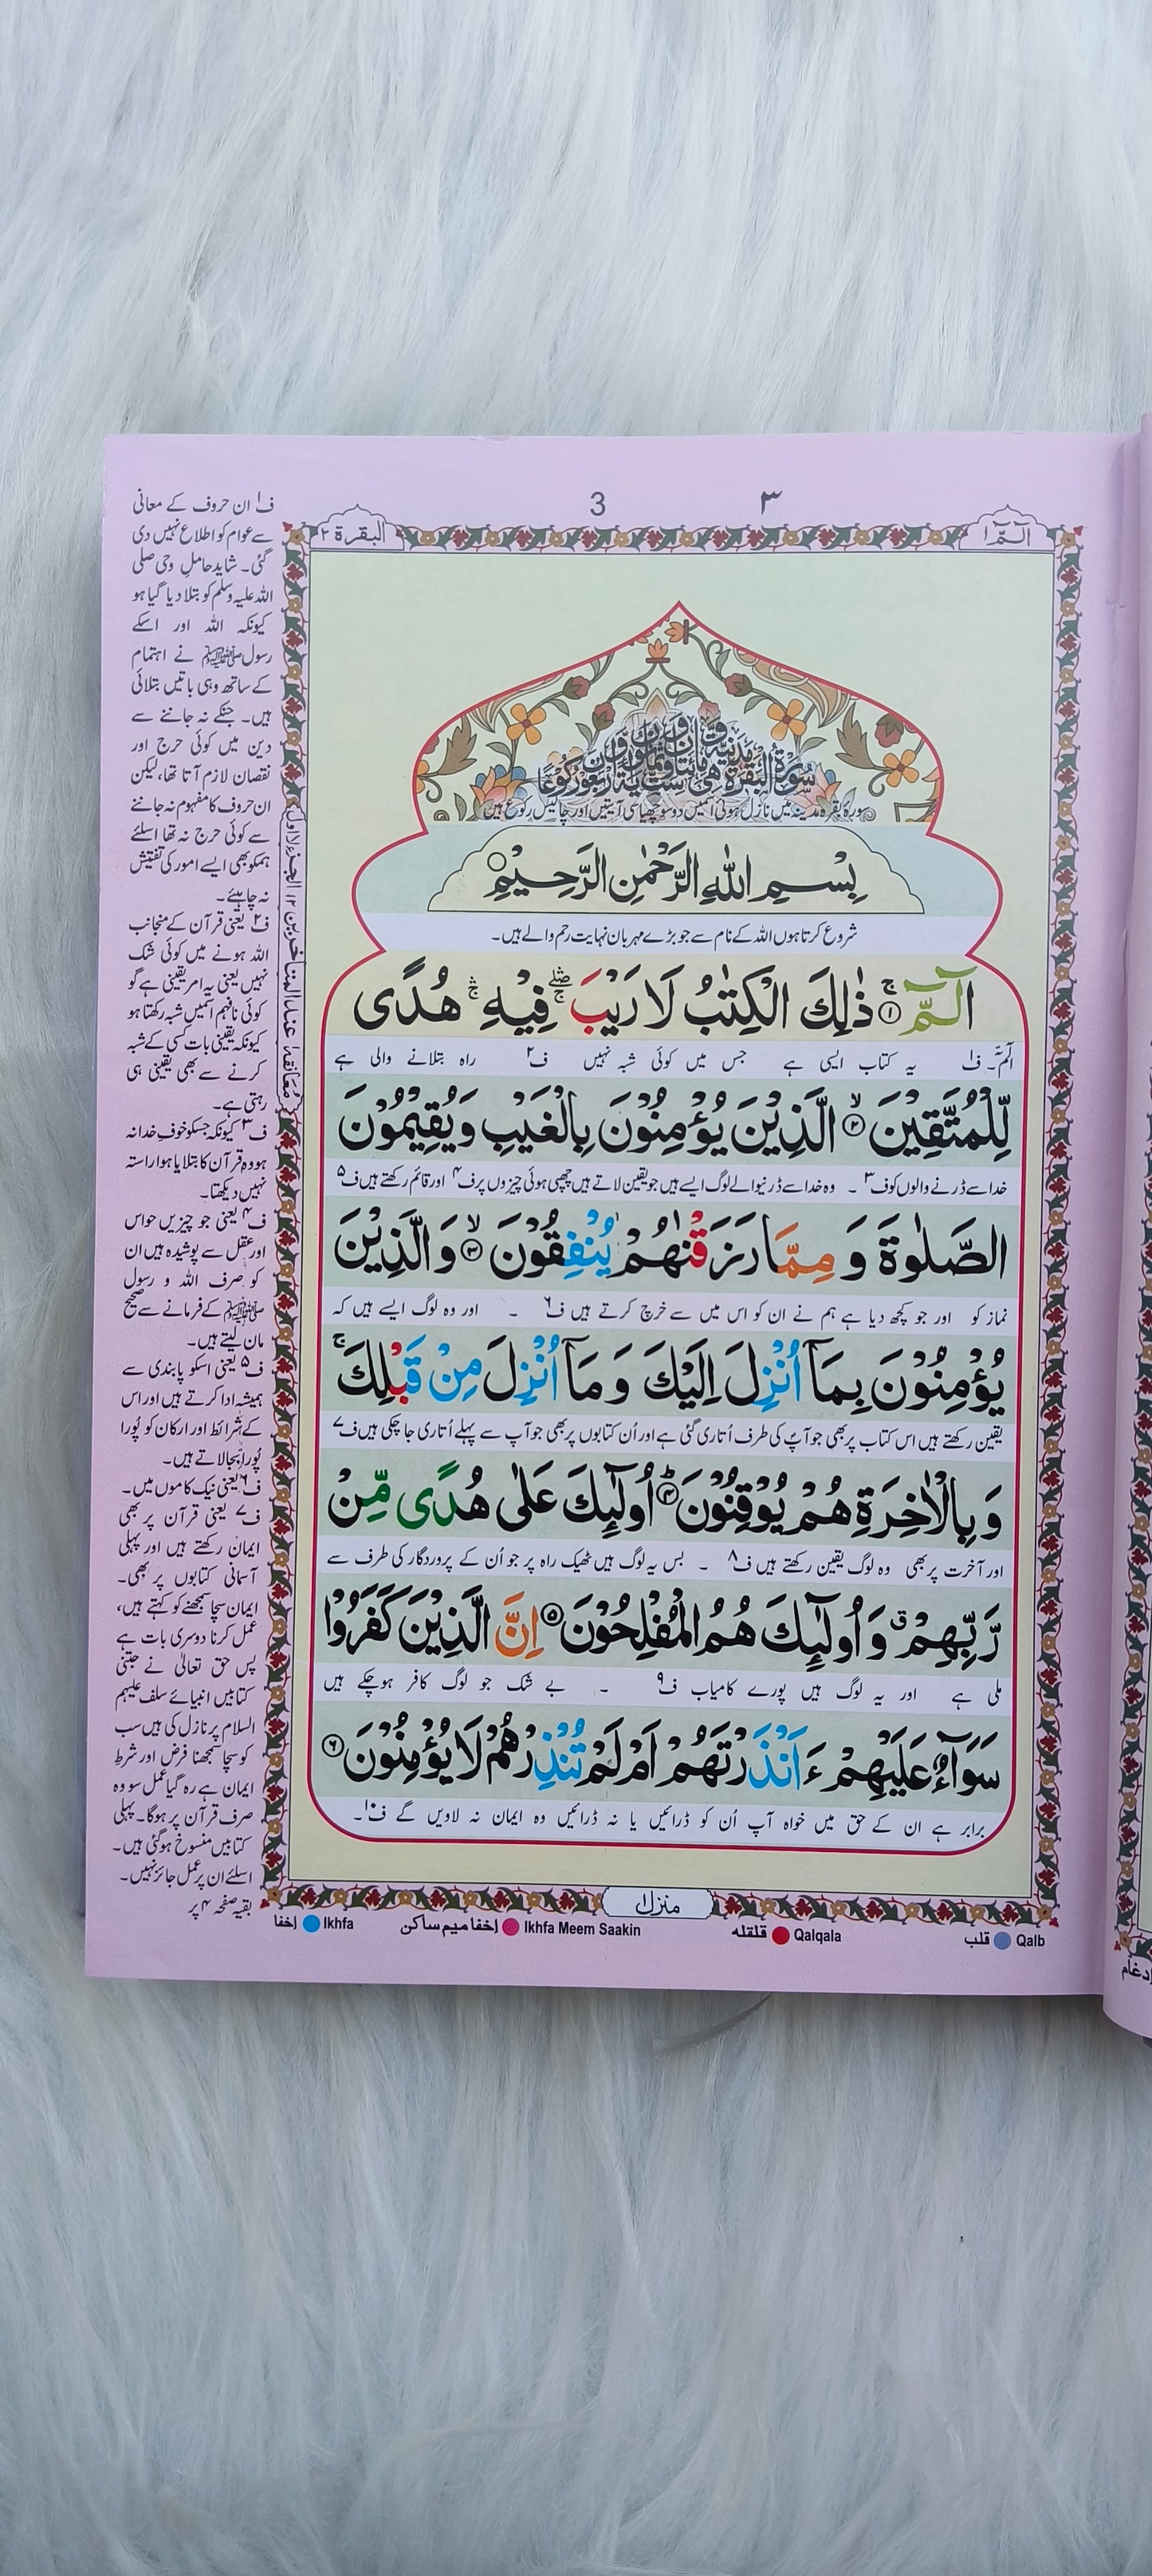 3 ٣
الٓمّٓ ١
البقرة ٢
سورۃ بقرہ مدینہ میں نازل ہوئی اسمیں دو سو چھیاسی آیتیں اور چالیس رکوع ہیں
بِسْمِ اللّٰهِ الرَّحْمٰنِ الرَّحِيْمِ
شروع کرتا ہوں اللہ کے نام سے جو بڑے مہربان نہایت رحم والے ہیں۔
الٓمّٓ ۚ ۱ ذٰلِكَ الْكِتٰبُ لَا رَيْبَ ۛۖۚ فِيْهِ ۛۚ هُدًى
الٓمّٓ۔ ف۱ یہ کتاب ایسی ہے جس میں کوئی شبہ نہیں ف۲ راہ بتلانے والی ہے
لِّلْمُتَّقِيْنَ ۙ ۲ الَّذِيْنَ يُؤْمِنُوْنَ بِالْغَيْبِ وَيُقِيْمُوْنَ
خدا سے ڈرنے والوں کو ف۳ ۔ وہ خدا سے ڈرنیوالے لوگ ایسے ہیں جو یقین لاتے ہیں چھپی ہوئی چیزوں پر ف۴ اور قائم رکھتے ہیں ف۵
الصَّلٰوةَ وَ مِمَّا رَزَقْنٰهُمْ يُنْفِقُوْنَ ۙ ۳ وَ الَّذِيْنَ
نماز کو اور جو کچھ دیا ہے ہم نے ان کو اس میں سے خرچ کرتے ہیں ف۶ ۔ اور وہ لوگ ایسے ہیں کہ
يُؤْمِنُوْنَ بِمَآ اُنْزِلَ اِلَيْكَ وَ مَآ اُنْزِلَ مِنْ قَبْلِكَ ۚ
یقین رکھتے ہیں اس کتاب پر بھی جو آپؐ کی طرف اُتاری گئی ہے اور اُن کتابوں پر بھی جو آپ سے پہلے اُتاری جا چکی ہیں ف۷
وَ بِالْاٰخِرَةِ هُمْ يُوْقِنُوْنَ ؕ ۴ اُولٰٓئِكَ عَلٰى هُدًى مِّنْ
اور آخرت پر بھی وہ لوگ یقین رکھتے ہیں ف۸ ۔ بس یہ لوگ ہیں ٹھیک راہ پر جو اُن کے پروردگار کی طرف سے
رَّبِّهِمْ ۗ وَ اُولٰٓئِكَ هُمُ الْمُفْلِحُوْنَ ۵ اِنَّ الَّذِيْنَ كَفَرُوْا
ملی ہے اور یہ لوگ ہیں پورے کامیاب ف۹ ۔ بے شک جو لوگ کافر ہو چکے ہیں
سَوَآءٌ عَلَيْهِمْ ءَاَنْذَرْتَهُمْ اَمْ لَمْ تُنْذِرْهُمْ لَا يُؤْمِنُوْنَ ۶
برابر ہے ان کے حق میں خواہ آپ اُن کو ڈرائیں یا نہ ڈرائیں وہ ایمان نہ لاویں گے ف۱۰۔
منزل ۱
ف۱ ان حروف کے معانی
سے عوام کو اطلاع نہیں دی
گئی۔ شاید حاملِ وحی صلی
اللہ علیہ وسلم کو بتلا دیا گیا ہو
کیونکہ اللہ اور اسکے
رسول ﷺ نے اہتمام
کے ساتھ وہی باتیں بتلائی
ہیں۔ جنکے نہ جاننے سے
دین میں کوئی حرج اور
نقصان لازم آتا تھا، لیکن
ان حروف کا مفہوم نہ جاننے
سے کوئی حرج نہ تھا اسلئے
ہمکو بھی ایسے امور کی تفتیش
نہ چاہیئے۔
ف۲ یعنی قرآن کے منجانب
اللہ ہونے میں کوئی شک
نہیں یعنی یہ امر یقینی ہے گو
کوئی نافہم اسمیں شبہ رکھتا ہو
کیونکہ یقینی بات کسی کے شبہ
کرنے سے بھی یقینی ہی
رہتی ہے۔
ف۳ کیونکہ جسکو خوفِ خدا نہ
ہو وہ قرآن کا بتلایا ہوا راستہ
نہیں دیکھتا۔
ف۴ یعنی جو چیزیں حواس
اور عقل سے پوشیدہ ہیں ان
کو صرف اللہ و رسول
ﷺ کے فرمانے سے صحیح
مان لیتے ہیں۔
ف۵ یعنی اسکو پابندی سے
ہمیشہ ادا کرتے ہیں اور اس
کے شرائط اور ارکان کو پُورا
پُورا بجا لاتے ہیں۔
ف۶ یعنی نیک کاموں میں۔
ف۷ یعنی قرآن پر بھی
ایمان رکھتے ہیں اور پہلی
آسمانی کتابوں پر بھی۔
ایمان سچا سمجھنے کو کہتے ہیں،
عمل کرنا دوسری بات ہے
پس حق تعالیٰ نے جتنی
کتابیں انبیائے سلف علیہم
السلام پر نازل کی ہیں سب
کو سچا سمجھنا فرض اور شرطِ
ایمان ہے رہ گیا عمل سو وہ
صرف قرآن پر ہوگا۔ پہلی
کتابیں منسوخ ہو گئی ہیں۔
اسلئے ان پر عمل جائز نہیں۔
بقیہ صفحہ ۴ پر
Qalb قلب
Qalqala قلقله
Ikhfa Meem Saakin إخفا میم ساکن
Ikhfa إخفا